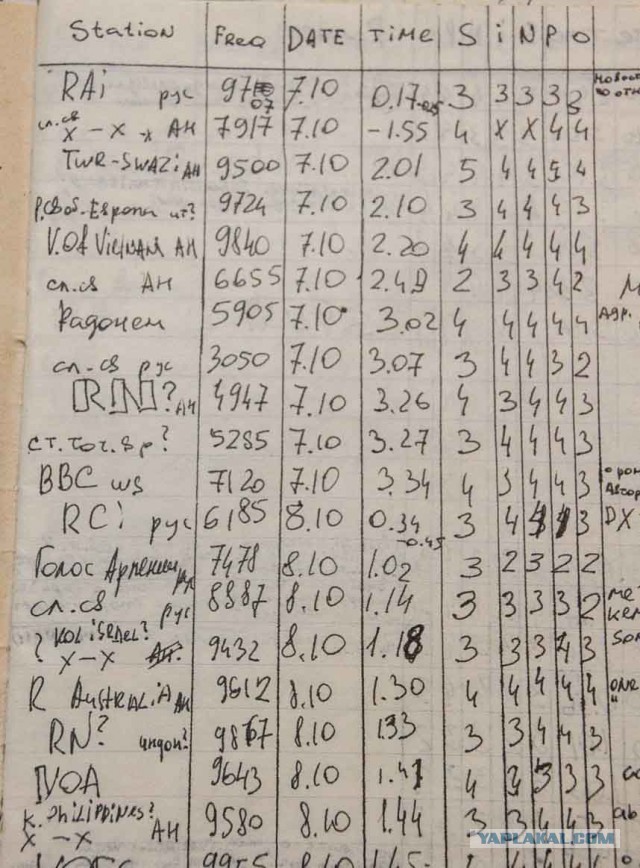 Station FREQ DATE TIME S I N P O
RAI рус 97 07 7.10 0.17 3 3 3 3 3
сл.св X-X АН 7917 7.10 -1.55 4 X X 4 4
TWR-SWAZI АН 9500 7.10 2.01 5 4 4 5 4
Р.Своб. Европа ит? 9724 7.10 2.10 3 4 4 4 3
V.Of VIETNAM АН 9840 7.10 2.20 4 4 4 4 4
сл.св АН 6655 7.10 2.49 2 3 3 4 2
5905 7.10 3.02 4 4 4 4 4 адр.
сл.св рус 3050 7.10 3.07 3 4 4 3 2
RN? АН 4947 7.10 3.26 4 3 4 4 3
ст.точ.вр? 5285 7.10 3.27 3 4 4 4 3
BBC WS 7120 7.10 3.34 4 3 4 4 3
RCI рус 6185 8.10 0.34 -0.45 3 4 3 DX
Голос Армении рус 7478 8.10 1.02 3 2 3 2 2
сл.св рус 8887 8.10 1.14 3 3 3 3 2
? KOL ISRAEL? X-X 9432 8.10 1.18 3 3 3 4 3
R AUSTRALIA АН 9612 8.10 1.30 4 4 4 4 4
RN? индон? 9867 8.10 1.33 3 3 4 4 3
VOA 9643 8.10 1.41 4 3 3 3
R. PHILIPPINES? X-X АН 9580 8.10 1.44 3 3 4 4 3
YAPLAKAL.COM